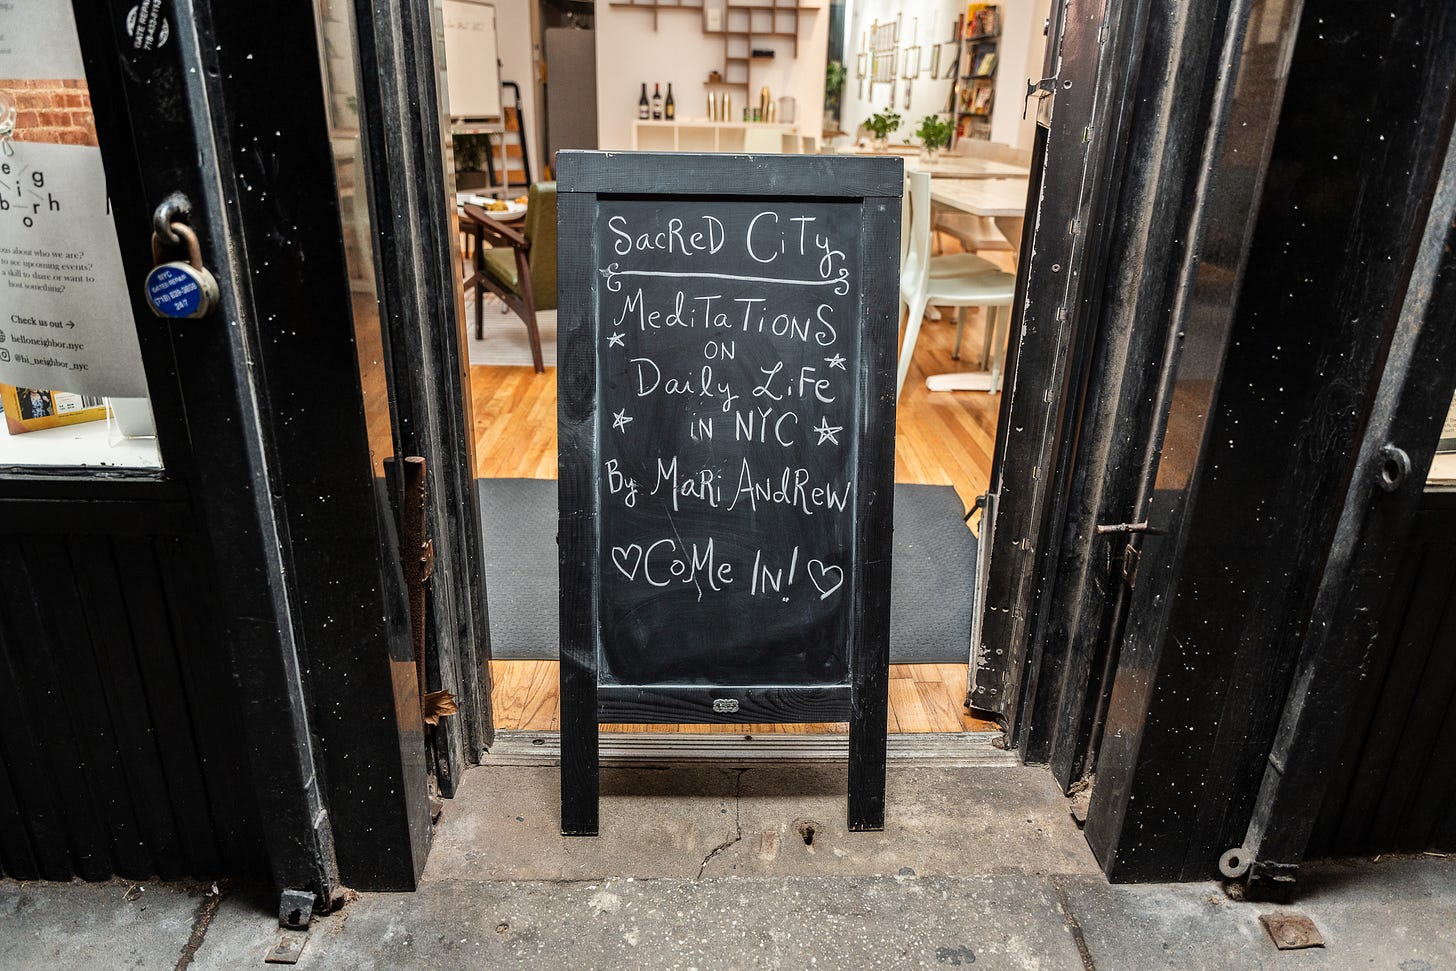 SacReD CiTy
MediTaTionS
ON
Daily LiFe
iN NYC
By MaRi AndRew
CoMe IN!
GATE REPAIR
e g
i
b r h
o
ous about who we are?
to see upcoming events?
a skill to share or want to
host something?
Check us out →
helloneighbor.nyc
@hi_neighbor_nyc
NYC
GATES REPAIR
(718) 839-3850
24/7